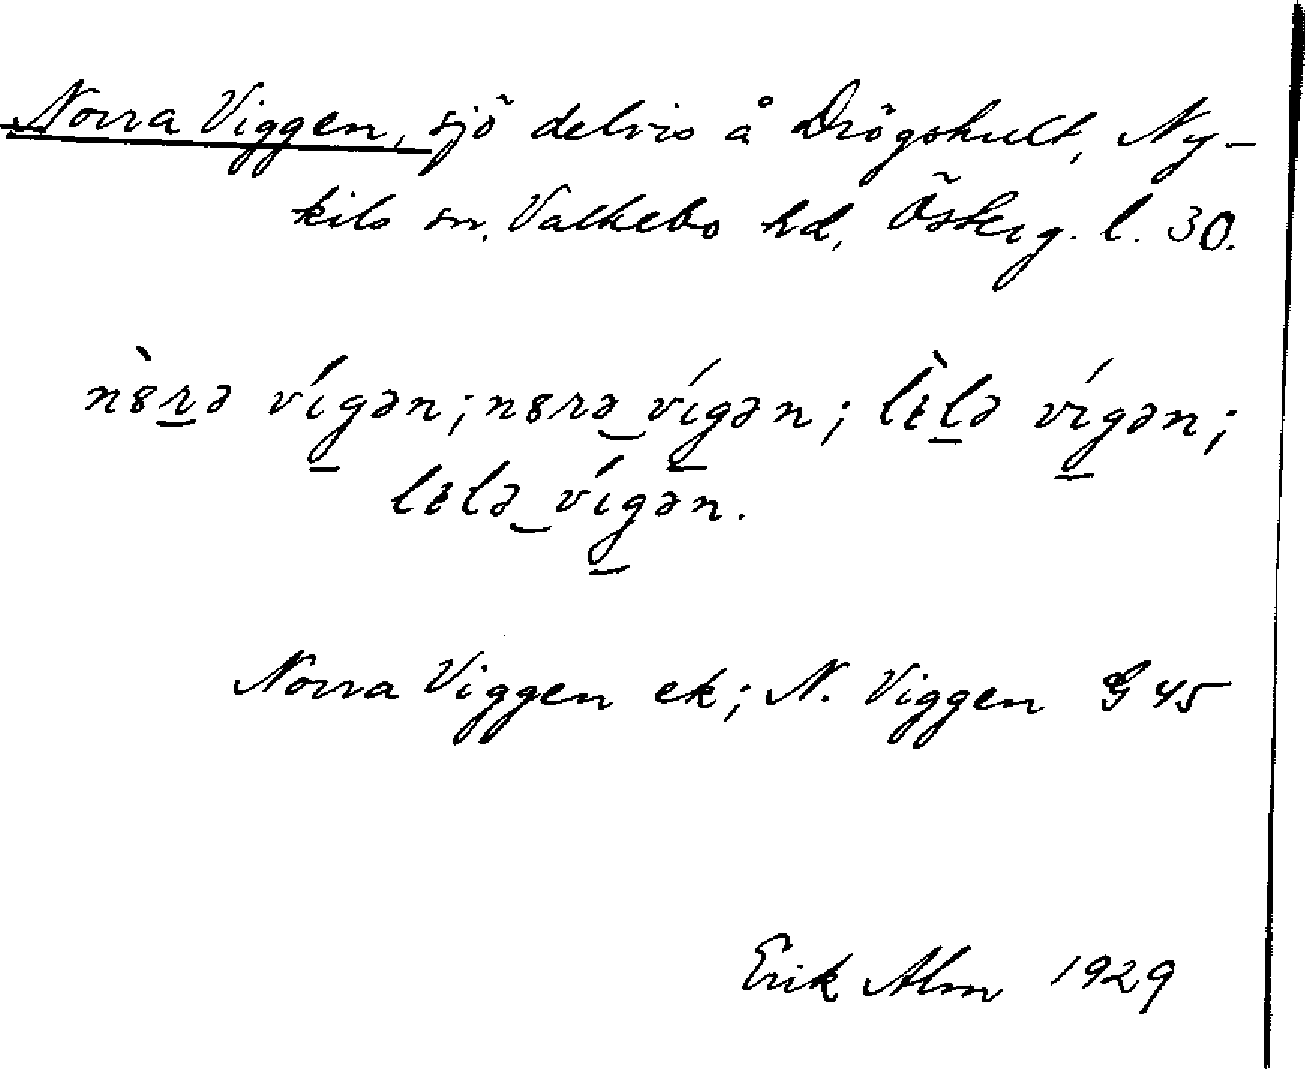 Norra Viggen, sjö delvis å Drögshult, Ny-
kils sn. Valkebo hd, Österg. l. 30.
n8̀r̲ə víg̲ən; n8rə‿víg̲ən; lìl̲ə víg̲ən;
lɩlə‿víg̲ən.
Norra Viggen ek; N. Viggen G 45
Erik Alm 1929